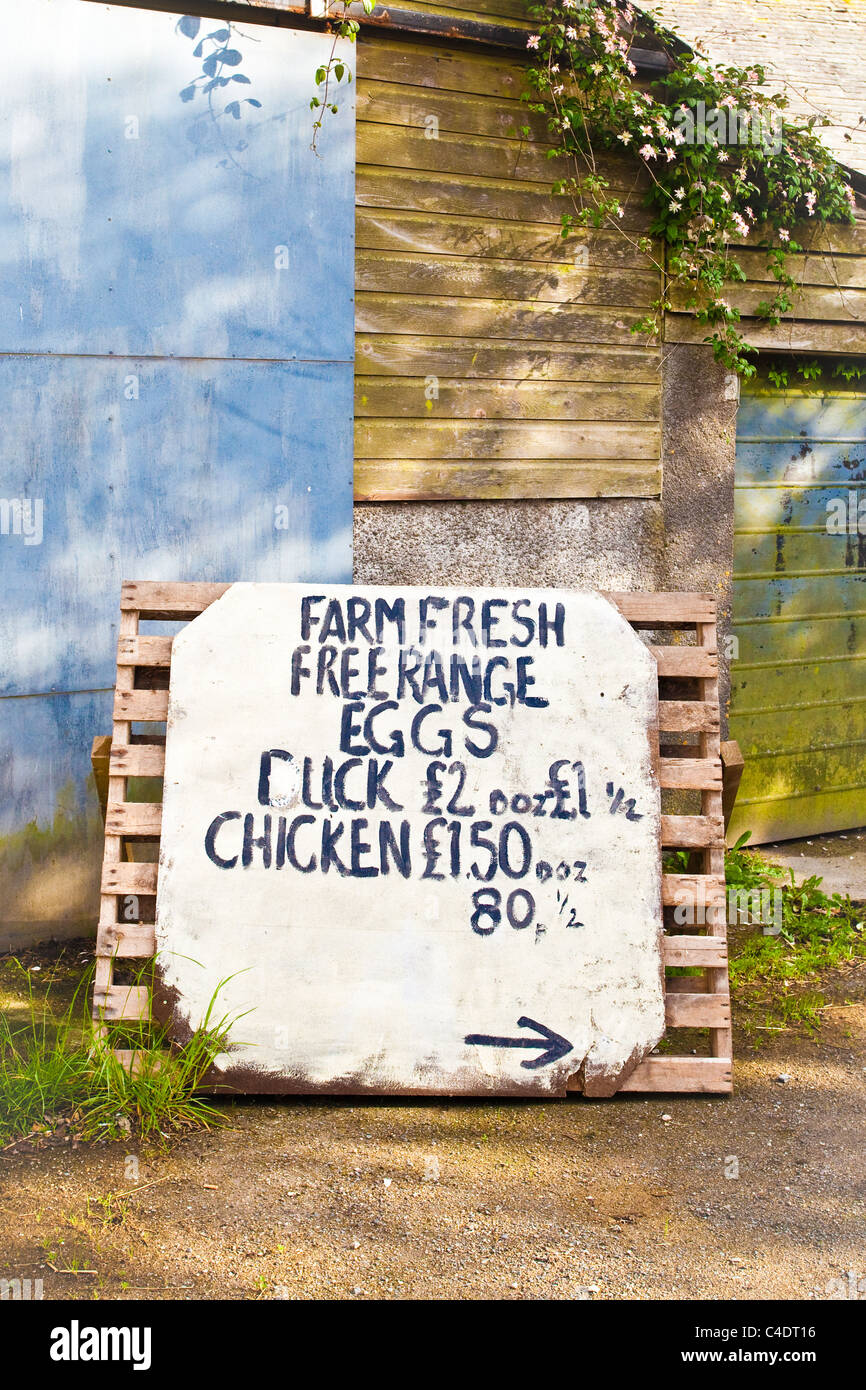 FARM FRESH
FREE RANGE
EGGS
DUCK £2 DOZ £1 ½
CHICKEN £1.50 DOZ
80p ½
alamy
Image ID: C4DT16
www.alamy.com